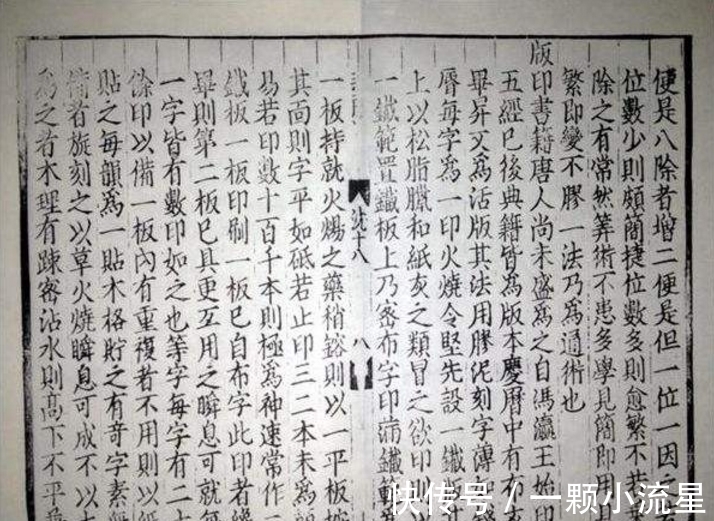 便是八除者增二便是但一位一因
位數少則頗簡捷位數多則愈繁不若
除之有常然筭術不患多學見簡即用
繁即變不膠一法乃為通術也
版印書籍唐人尚未盛為之自馮瀛王始印
五經已後典籍皆為版本慶曆中有布
畢昇又為活版其法用膠泥刻字薄如
脣每字為一印火燒令堅先設一鐵
上以松脂臘和紙灰之類冒之欲印則
一鐵範置鐵板上乃密布字印滿鐵範
沈十八 八
一板持就火煬之藥稍鎔則以一平板按
其面則字平如砥若止印三二本未為
易若印數十百千本則極為神速常作
鐵板一板印刷一板已自布字此印者
畢則第二板已具更互用之瞬息可就
一字皆有數印如之也等字每字有二十
餘印以備一板內有重複者不用則以
貼之每韻為一貼木格貯之有奇字素無
備者旋刻之以草火燒瞬息可成不以
為之者木理有踈密沾水則高下不平
快传号／一颗小流星